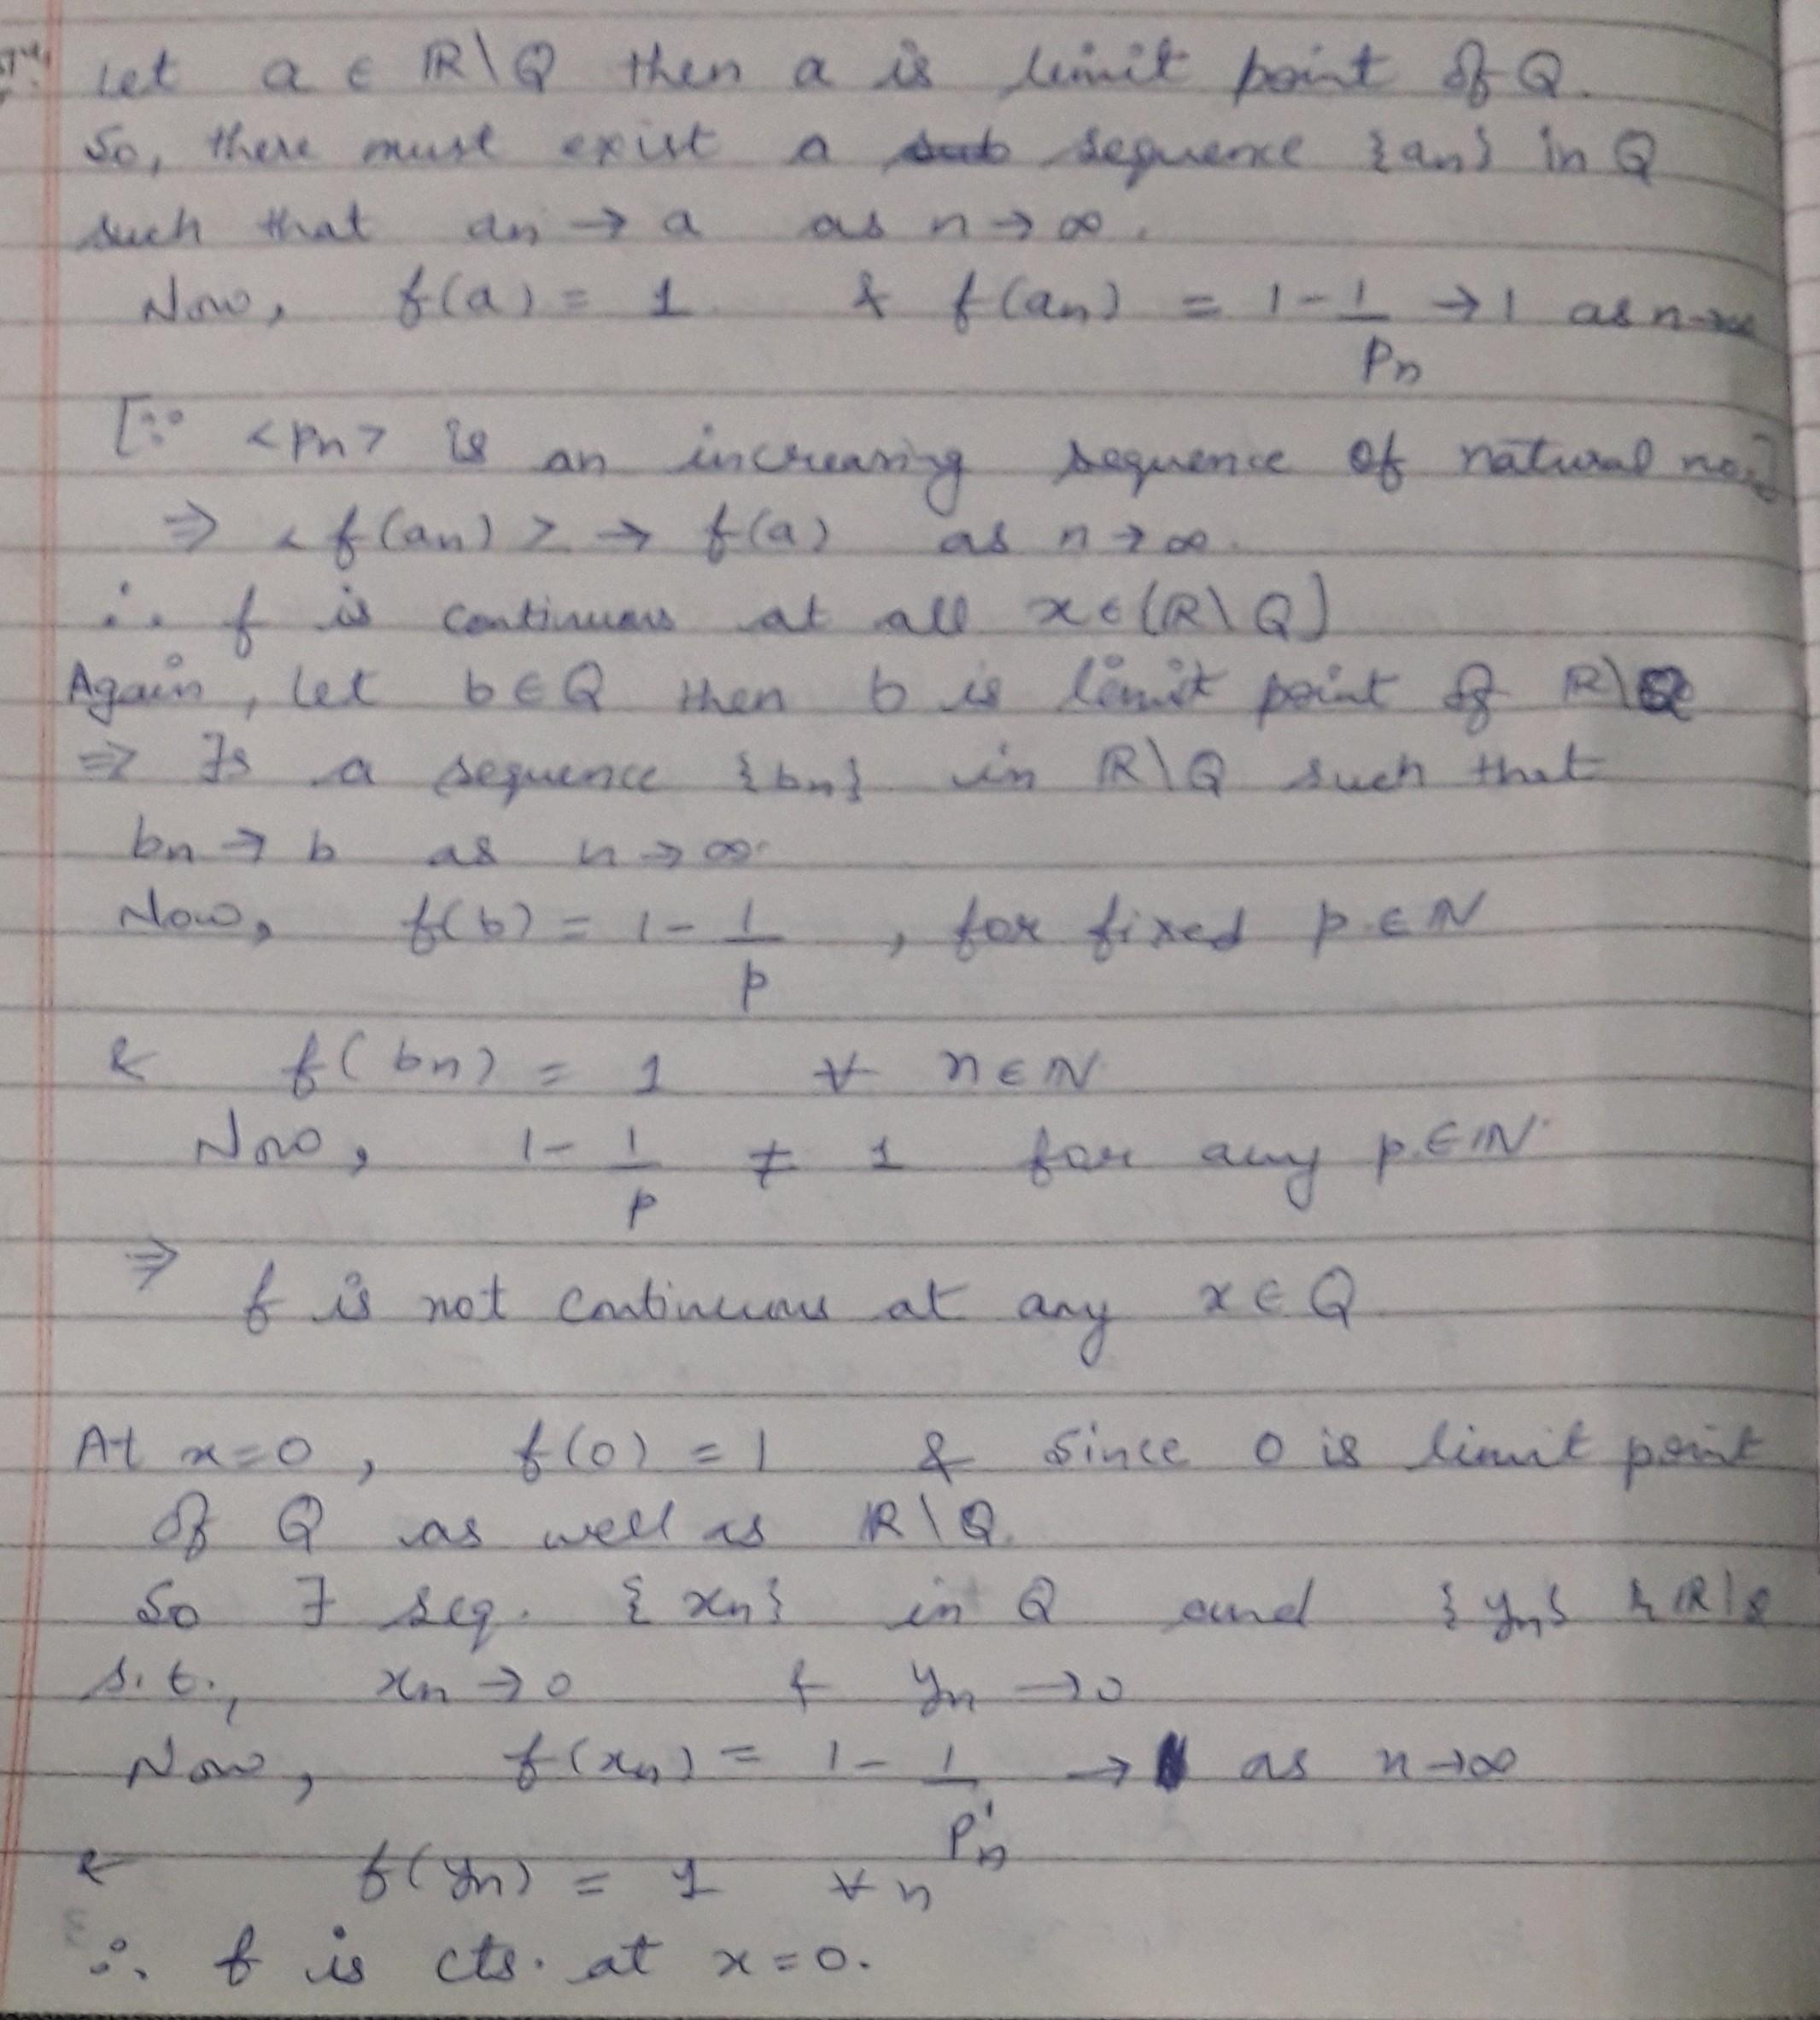 Let a ∈ ℝ\Q then a is limit point of Q.
So, there must exist a sequence {an} in Q
such that an → a as n → ∞.
Now, f(a) = 1 & f(an) = 1 - 1/Pn → 1 as n→∞
[∵ <Pn> is an increasing sequence of natural no.]
⇒ <f(an)> → f(a) as n → ∞.
∴ f is continuous at all x ∈ (ℝ\Q)
Again, let b ∈ Q then b is limit point of ℝ\Q
⇒ ∃s a sequence {bn} in ℝ\Q such that
bn → b as n → ∞.
Now, f(b) = 1 - 1/p , for fixed p ∈ ℕ
& f(bn) = 1 ∀ n ∈ ℕ
Now, 1 - 1/p ≠ 1 for any p ∈ ℕ
⇒
f is not continuous at any x ∈ Q
At x = 0, f(0) = 1 & since 0 is limit point
of Q as well as ℝ\Q.
So ∃ seq. {xn} in Q and {yn} ℝ\Q
s.t., xn → 0 & yn → 0
Now, f(xn) = 1 - 1/P'n → 1 as n → ∞
& f(yn) = 1 ∀ n
∴ f is cts. at x = 0.